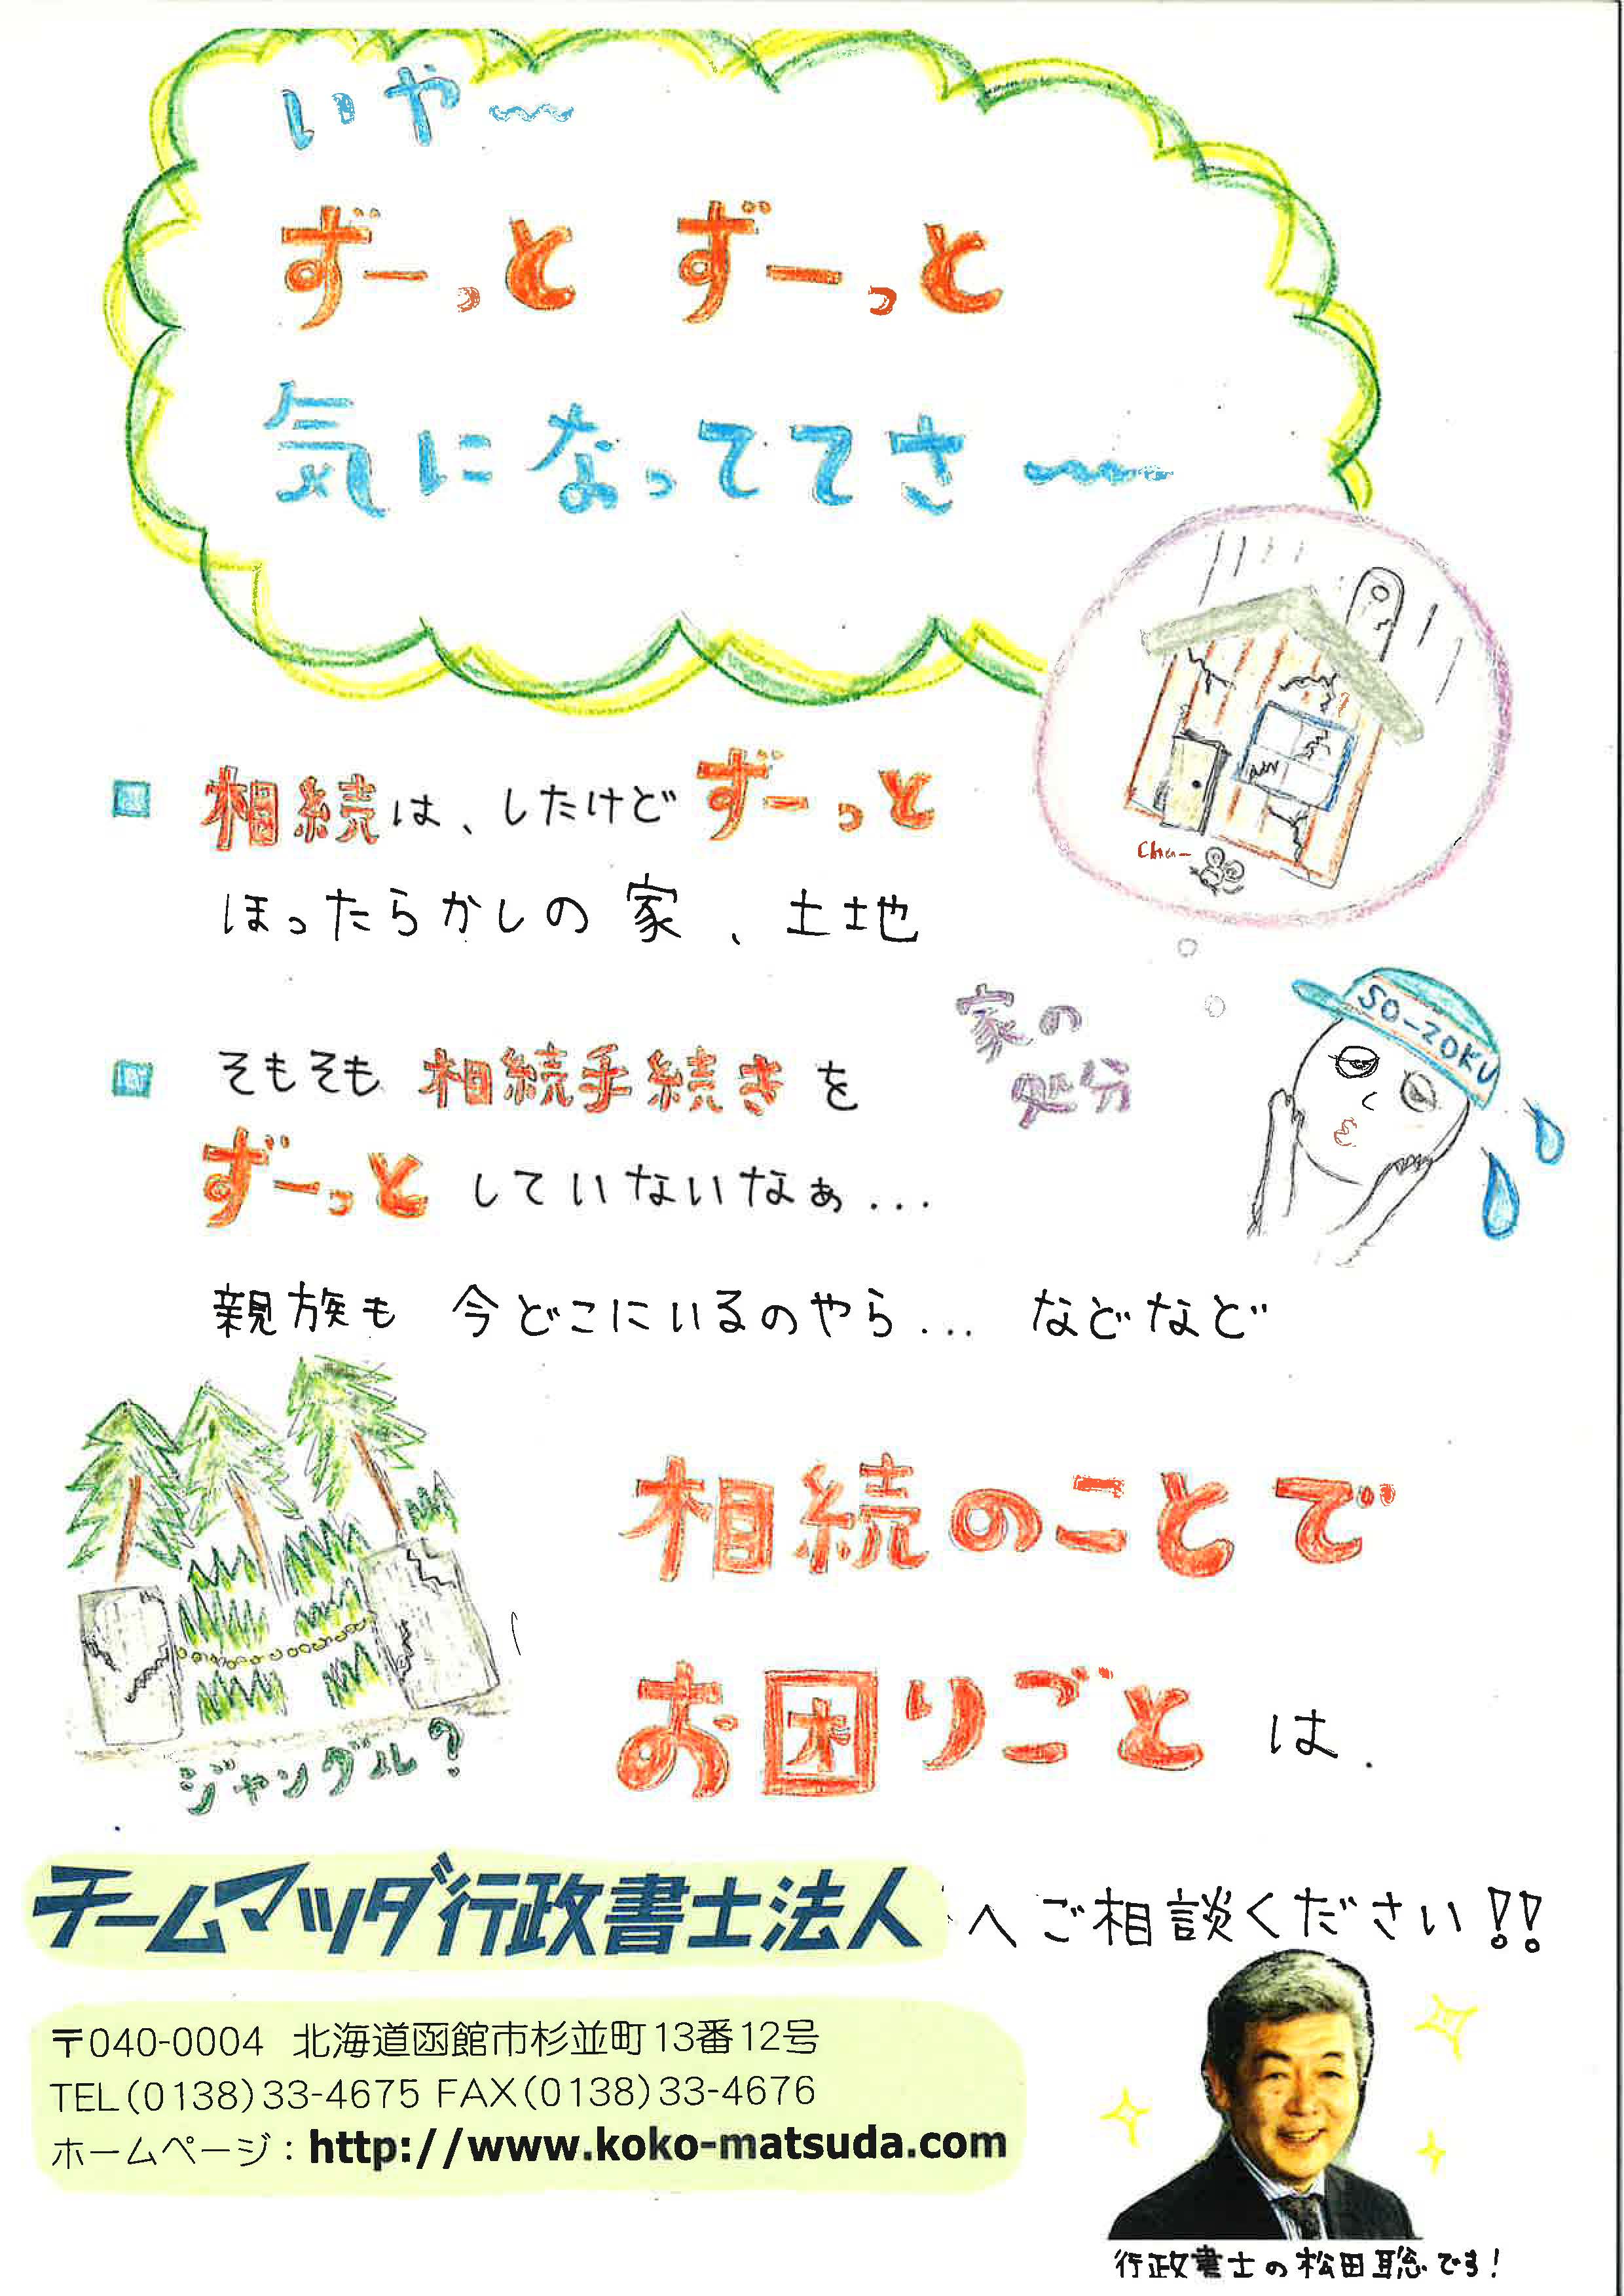 いや〜
ずーっと ずーっと
気になっててさ〜
相続は、したけどずーっと
ほったらかしの家、土地
Chu-
家の
処分
SO-ZOKU
そもそも相続手続きを
ずーっとしていないなぁ...
親族も 今どこにいるのやら... などなど
ジャングル?
相続のことで
お困りごとは.
チームマツダ行政書士法人へご相談ください!!
〒040-0004 北海道函館市杉並町13番12号
TEL(0138)33-4675 FAX(0138)33-4676
ホームページ:http://www.koko-matsuda.com
行政書士の松田聡です!